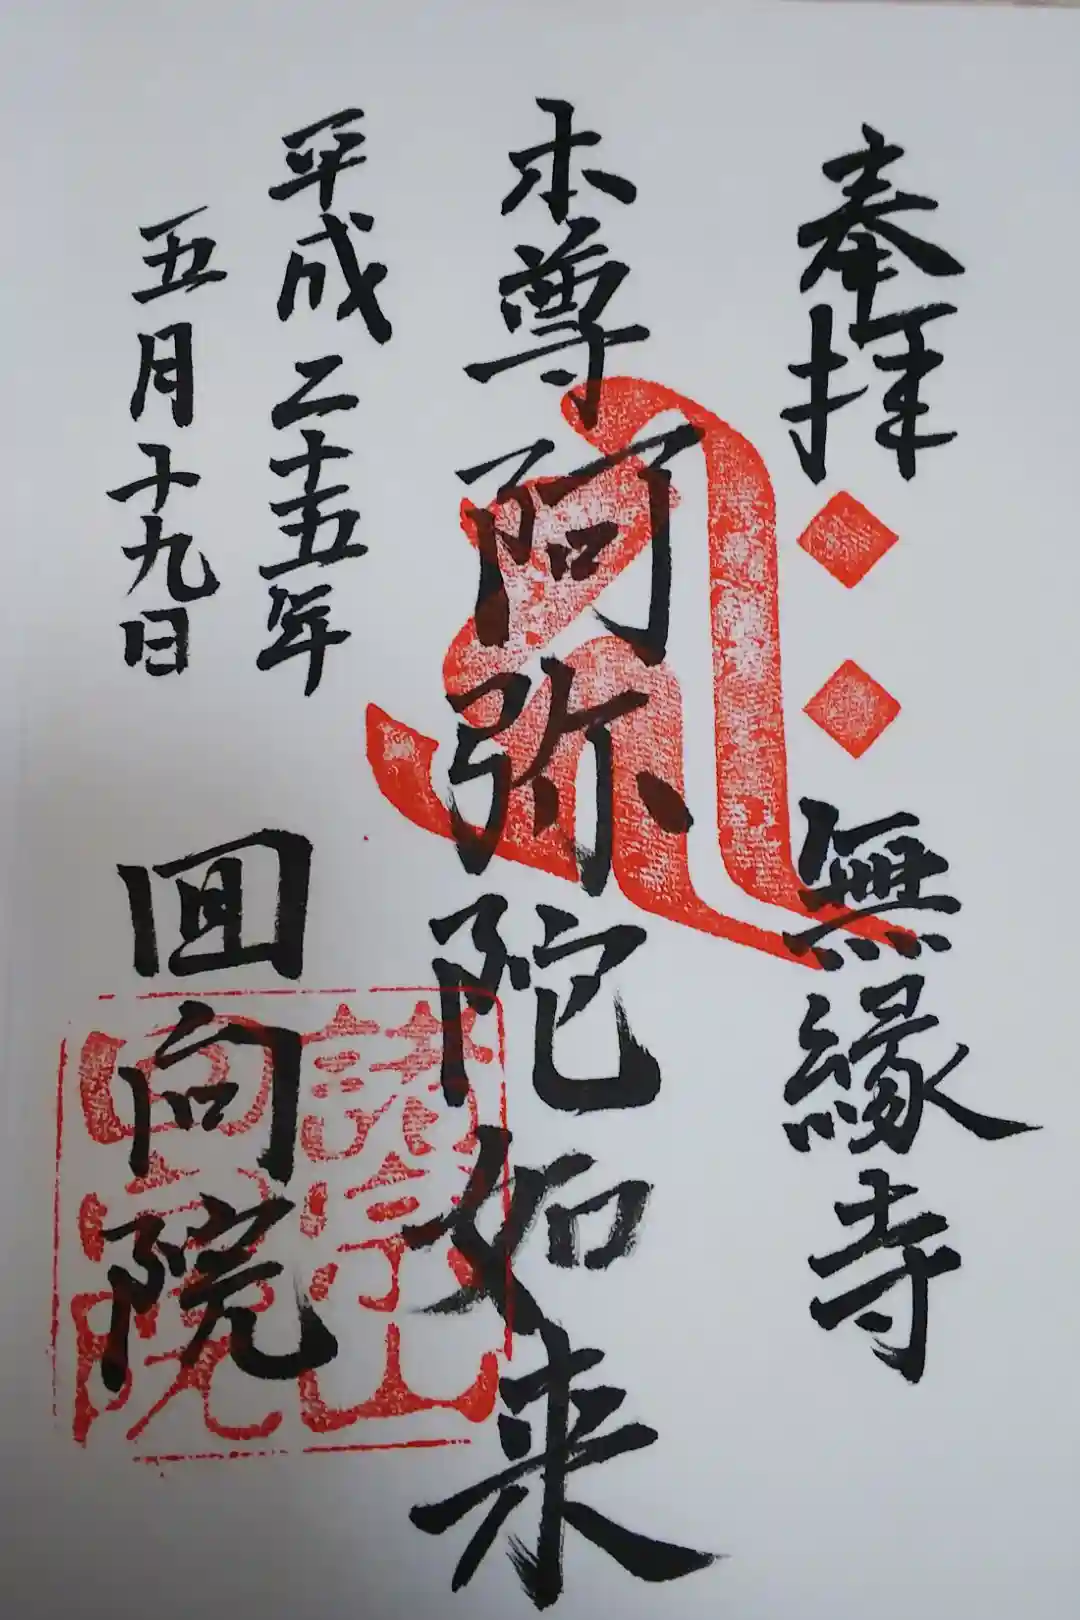 奉拝
無縁寺
本尊阿弥陀如来
平成二十五年
五月十九日
回向院
諸宗山
回向院